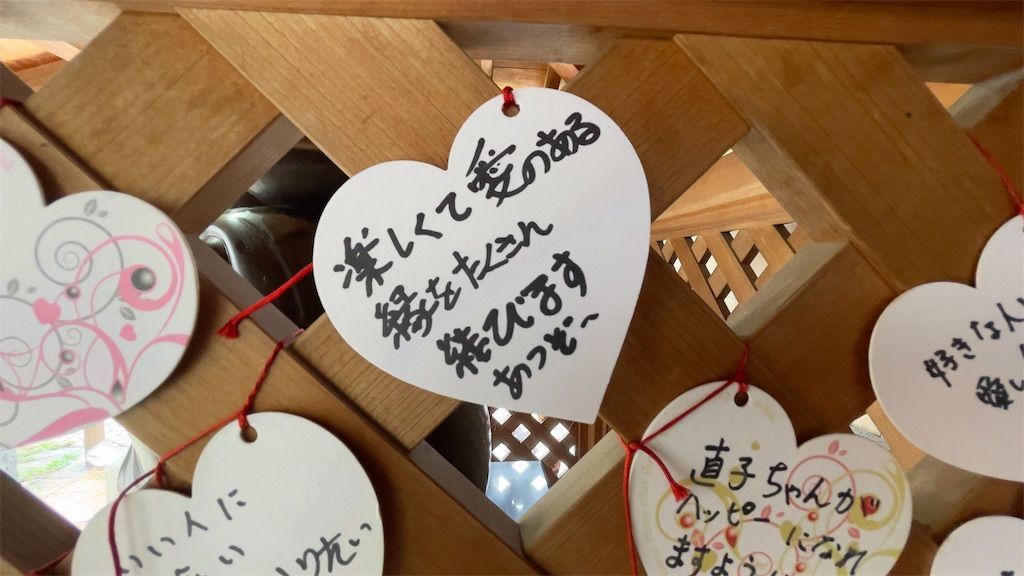 楽しくて愛のある
縁をたくさん
結びます
あつぞ～
直子ちゃんが
ハッピーになれ
ますよう
好きな人
いい人に